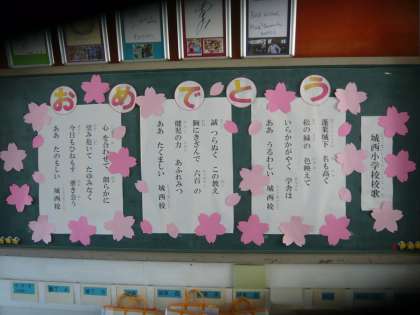 おめでとう
城西小学校校歌
蓬莱城下 名も高く
松の緑の 色映えて
いらかかがやく 学舎は
ああ うるわしい 城西校
誠 つらぬく この教え
胸にきざんで 六百の
健児の力 あふれみつ
ああ たくましい 城西校
心を合わせて 朗らかに
望み抱いて たゆみなく
今日もひねもす 磨き合う
ああ たのもしい 城西校